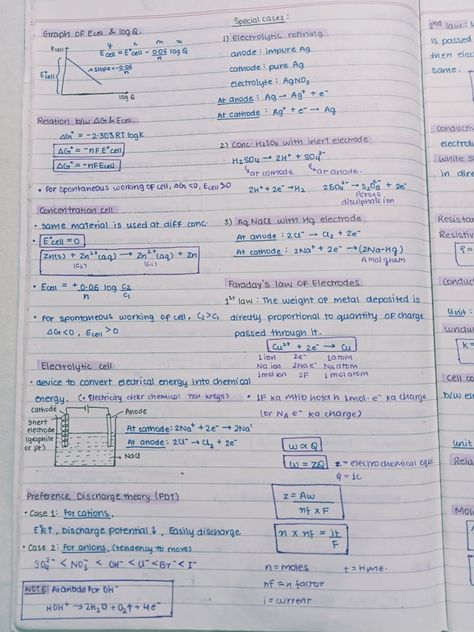 Graph of Ecell & log Q.
y c m x
Ecell = E°cell − 0.06/n log Q
Ecell
E°cell
slope = −0.06/n
log Q
Relation b/w ΔG & Ecell.
ΔG° = −2.303RT logK
ΔG° = −nF E°cell
ΔG = −nF Ecell
• For spontaneous working of cell, ΔG < 0, Ecell > 0
Concentration cell
• same material is used at diff conc.
• E°cell = 0
Zn(s) + Zn²⁺(aq) → Zn²⁺(aq) + Zn
(C₂) (C₁)
• Ecell = +0.06/n log C₂/C₁
• For spontaneous working of cell, C₂ > C₁
ΔG < 0, Ecell > 0
Electrolytic cell
• device to convert electrical energy into chemical
energy. (• Electricity dekr chemical rxn krega)
cathode
Anode
Inert
electrode
(graphite
or pt)
NaCl
At cathode: 2Na⁺ + 2e⁻ → 2Na
At anode: 2Cl⁻ → Cl₂ + 2e⁻
Preference Discharge theory (PDT)
• Case 1: For cations,
E°R↑, Discharge potential ↓, Easily discharge
• Case 2: For anions, (tendency to move)
SO₄²⁻ < NO₃⁻ < OH⁻ < Cl⁻ < Br⁻ < I⁻
NOTE: At anode for OH⁻
4OH⁻ → 2H₂O + O₂↑ + 4e⁻
Special cases:
1) Electrolytic refining
anode: impure Ag
cathode: pure Ag
electrolyte: AgNO₃
At anode: Ag → Ag⁺ + e⁻
At cathode: Ag⁺ + e⁻ → Ag
2) Conc. H₂SO₄ with inert electrode
H₂SO₄ → 2H⁺ + SO₄²⁻
at cathode at anode.
2H⁺ + 2e⁻ → H₂ 2SO₄²⁻ → S₂O₈²⁻ + 2e⁻
Peroxo
3) Aq NaCl with Hg electrode
At anode: 2Cl⁻ → Cl₂ + 2e⁻
At cathode: 2Na⁺ + 2e⁻ → (2Na-Hg)
Amalgham
Faraday's law OF Electrodes
1st law: The weight of metal deposited is
directly proportional to quantity of charge
passed through it.
Cu²⁺ + 2e⁻ → Cu
1 ion 2e⁻ 1 atom
NA ion 2NA e⁻ NA atom
1 mol ion 2F 1 mol atom
• 1F ka mtlb hota h 1mol e⁻ ka charge
(or NA e⁻ ka charge)
W ∝ Q
W = ZQ
Z = electrochemical eq
Q = 1C
Z = Aw / nf × F
n × nf = it / F
n = moles t = time.
nf = n factor
i = current
2nd law:
is passed
then elec
same.
Conducti
electrol
White s
in dire
Resistan
Resistiv
ρ =
Conduc
unit:
k =
Cell co
b/w el
unit
Rela
Mola